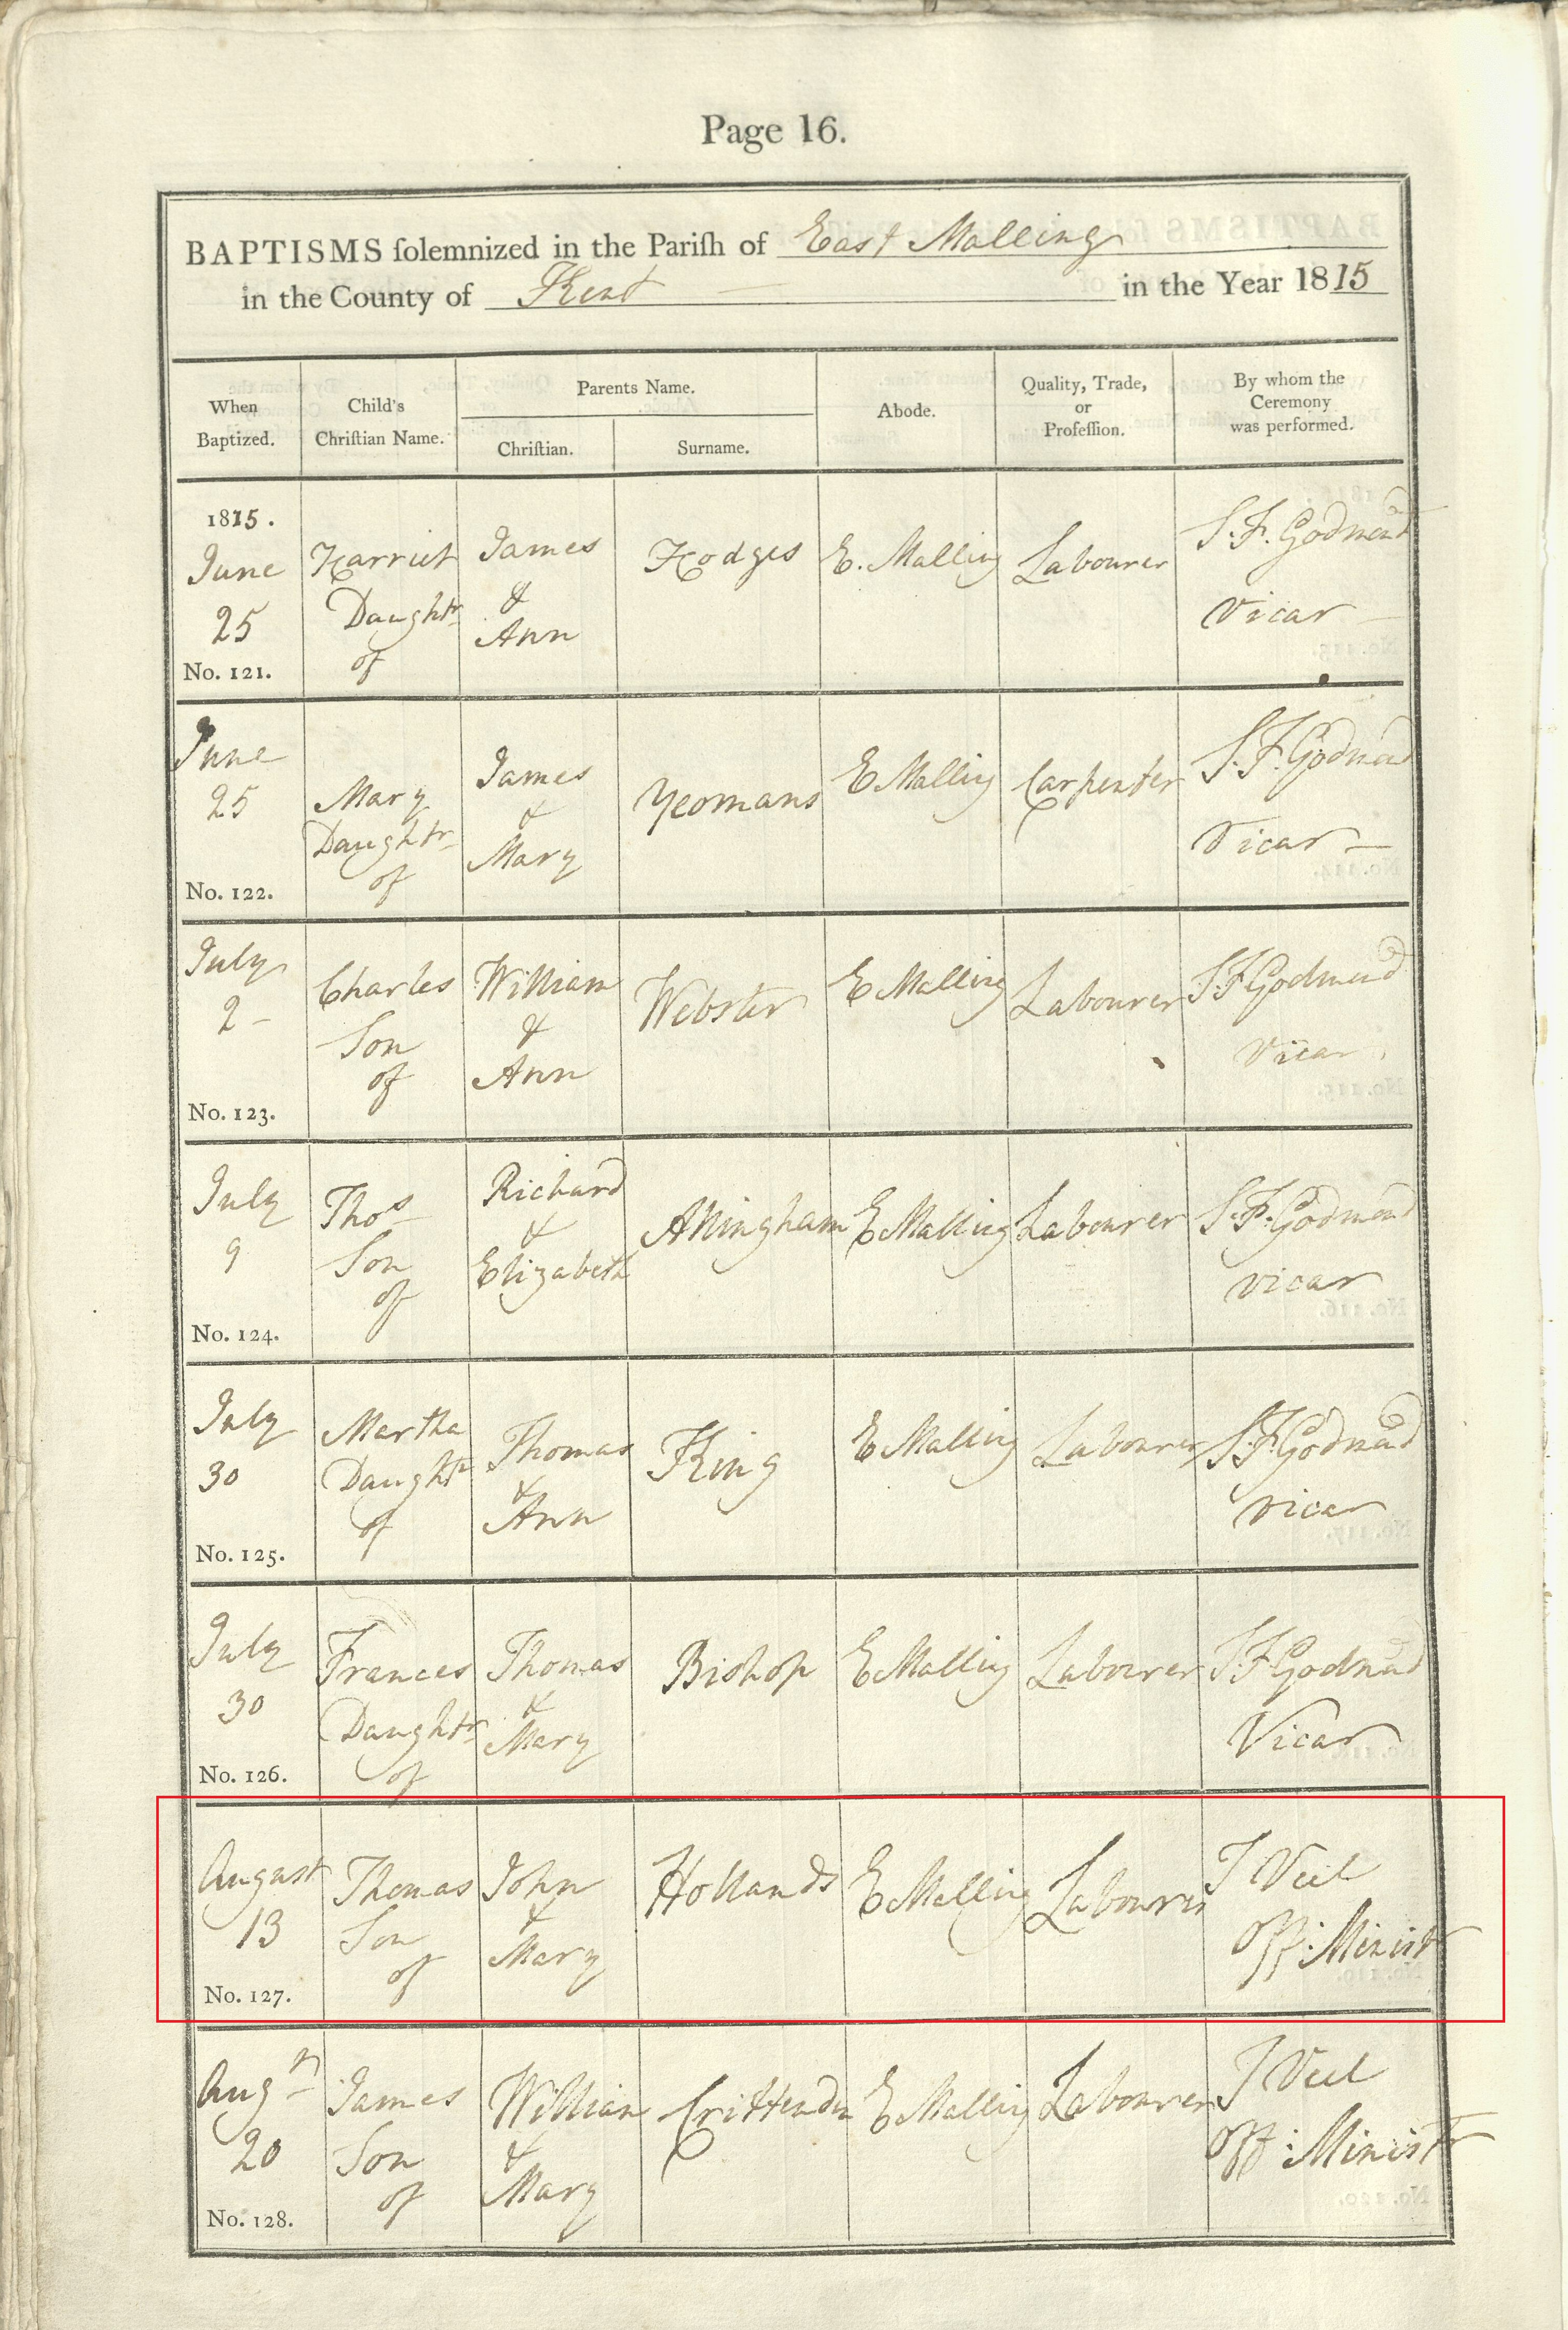 Page 16.
BAPTISMS ſolemnized in the Pariſh of East Malling
in the County of Kent in the Year 1815
When Baptized.
Child's Chriſtian Name.
Parents Name.
Chriſtian.
Surname.
Abode.
Quality, Trade, or Profeſſion.
By whom the Ceremony was performed.
1815.
June
25
No. 121.
Harriet
Daughtr
of
James
&
Ann
Hodges
E. Malling
Labourer
S. F. Godmond
Vicar
June
25
No. 122.
Mary
Daughtr
of
James
&
Mary
Yeomans
E Malling
Carpenter
S. F. Godmond
Vicar
July
2
No. 123.
Charles
Son
of
William
&
Ann
Webster
E Malling
Labourer
S F Godmond
Vicar
July
9
No. 124.
Thos
Son
of
Richard
&
Elizabeth
Allingham
E Malling
Labourer
S. F. Godmond
vicar
July
30
No. 125.
Martha
Daughtr
of
Thomas
&
Ann
King
E Malling
Labourer
S. F. Godmond
vicar
July
30
No. 126.
Frances
Daughtr
of
Thomas
&
Mary
Bishop
E Malling
Labourer
S. F Godmond
Vicar
August
13
No. 127.
Thomas
Son
of
John
&
Mary
Hollands
E Malling
Labourer
J Veel
Off: Ministr
Aug
20
No. 128.
James
Son
of
William
&
Mary
Crittenden
E Malling
Labourer
J Veel
Off: Ministr